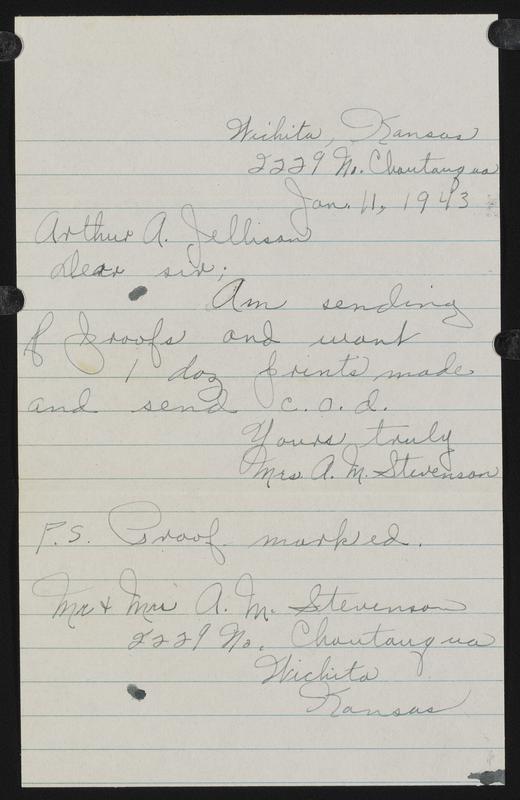 Wichita, Kansas
2229 No. Chautauqua
Jan. 11, 1943
Arthur A. Jellison
Dear sir;
Am sending
proofs and want
1 doz prints made
and send c.o.d.
Yours truly
Mrs. A. M. Stevenson
P.S. Proof marked.
Mr & Mrs A. M. Stevenson
2229 No. Chautauqua
Wichita
Kansas